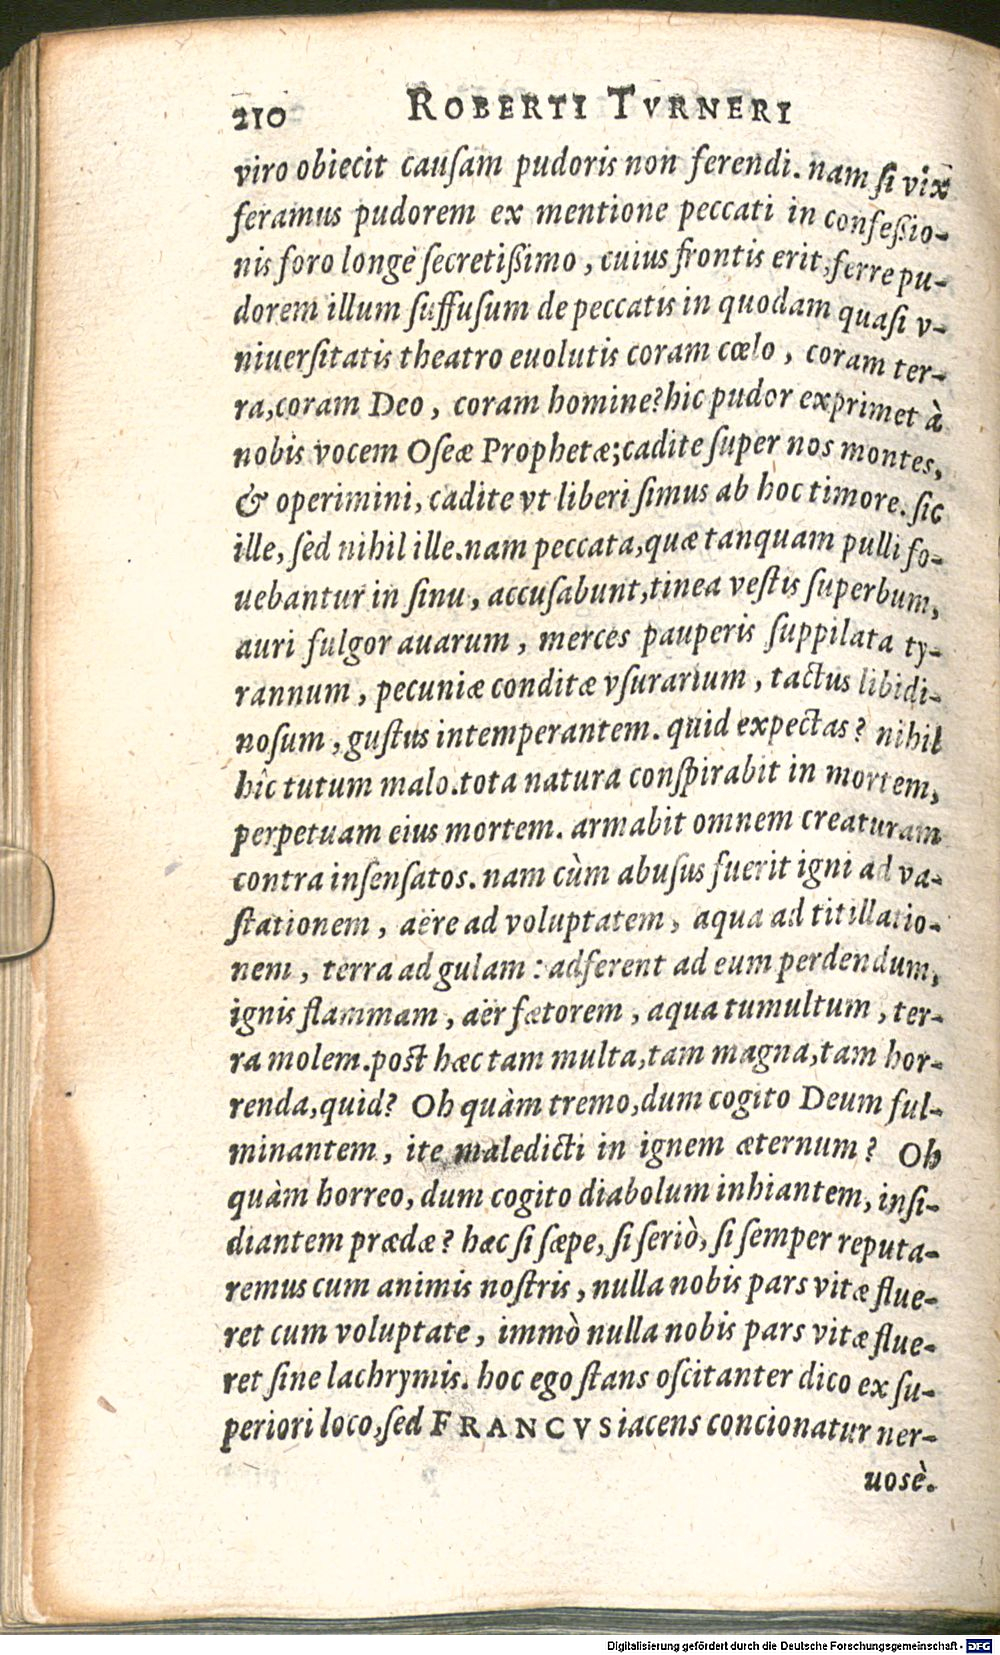 210 ROBERTI TVRNERI
viro obiecit causam pudoris non ferendi. nam si vix
feramus pudorem ex mentione peccati in confeßio-
nis foro longè secretißimo, cuius frontis erit, ferre pu-
dorem illum suffusum de peccatis in quodam quasi v-
niuersitatis theatro euolutis coram cœlo, coram ter-
ra, coram Deo, coram homine? hic pudor exprimet à
nobis vocem Oseæ Prophetæ; cadite super nos montes,
& operimini, cadite vt liberi simus ab hoc timore. sic
ille, sed nihil ille. nam peccata, quæ tanquam pulli fo-
uebantur in sinu, accusabunt, tinea vestis superbum,
auri fulgor auarum, merces pauperis suppilata ty-
rannum, pecuniæ conditæ vsurarium, tactus libidi-
nosum, gustus intemperantem. quid expectas? nihil
hîc tutum malo. tota natura conspirabit in mortem,
perpetuam eius mortem. armabit omnem creaturam
contra insensatos. nam cùm abusus fuerit igni ad va-
stationem, aëre ad voluptatem, aqua ad titillatio-
nem, terra ad gulam: adferent ad eum perdendum,
ignis flammam, aër fœtorem, aqua tumultum, ter-
ra molem. post hæc tam multa, tam magna, tam hor-
renda, quid? Oh quàm tremo, dum cogito Deum ful-
minantem, ite maledicti in ignem æternum? Oh
quàm horreo, dum cogito diabolum inhiantem, insi-
diantem prædæ? hæc si sæpe, si seriò, si semper reputa-
remus cum animis nostris, nulla nobis pars vitæ flue-
ret cum voluptate, immò nulla nobis pars vitæ flue-
ret sine lachrymis. hoc ego stans oscitanter dico ex su-
periori loco, sed FRANCVS iacens concionatur ner-
uosè.
Digitalisierung gefördert durch die Deutsche Forschungsgemeinschaft - DFG